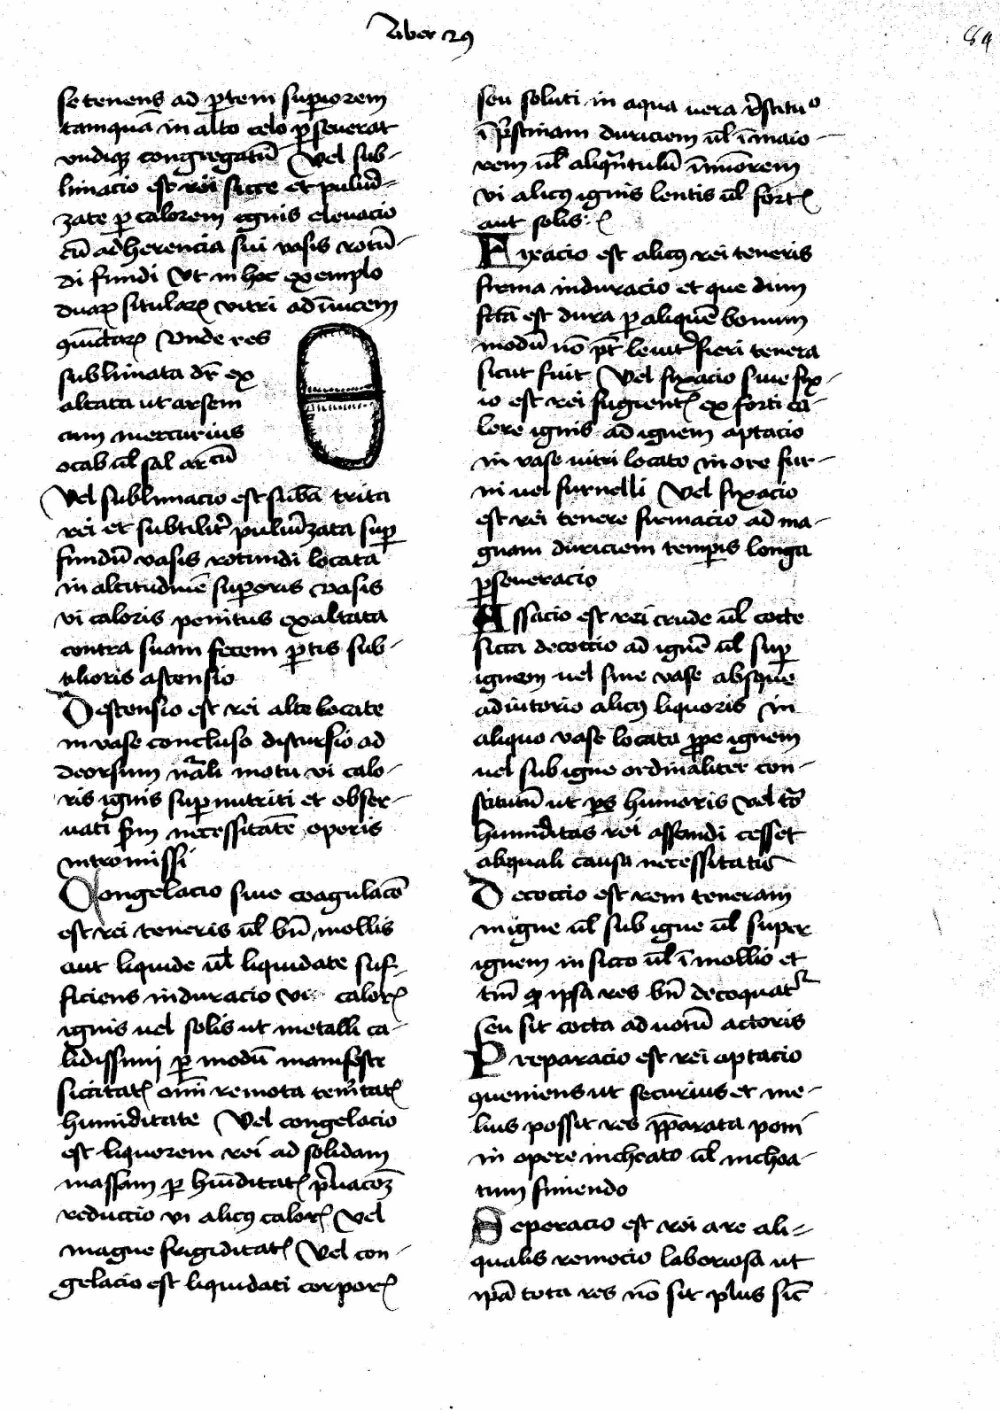 Liber 29
84
se tenens ad ptem supiorem
tamquā in alto celo pseuerat
vndiqz congregatū Vel sub-
limacio est rei sicce et puluīr-
zate p calorem ignis eleuacio
cū adherencia sui vasis rotū-
di fundi Vt in hoc exemplo
duaꝝ situlaꝝ vitri ad īuicem
Vnde res
sublimata dr̄ ex
altata ut arsem
cum mercurius
ul̄ sal
Vel sublimacio est trita
rei et subtilit̄ puluīzata sup
fundū vasis rotundi locata
in altitudinē superis vasis
vi caloris penitus exaltata
contra suam fecem ptis sub-
tilioris astensio
Destensio est rei alte locate
in vase concluso discursio ad
deorsum nāli motu vi calo-
ris ignis sup nutriti et obser-
uati necessitatē operis
intromissi
Congelacio siue coagulacō
est rei teneris ul̄ bn̄ mollis
aut liquide ul̄ liquidate suf-
ficiens induracio vi calorꝭ
ignis uel solis ut metalli ca-
lidissimi p modū manifeste
siccitatꝭ om̄i remota
humiditate Vel congelacio
est liquorem rei ad solidam
massam p hūiditatꝭ pͥuacoꝫ
reductio vi alicꝰ calorꝭ Vel
magne frigiditatꝭ Vel con-
gelacio est liquidati corporꝭ
seu soluti in aqua uera
ī pͥstinam duriciem ul̄ ī maio-
rem ul̄ aliqͣntulū īmīorem
vi alicꝰ ignis lentis ul̄ fortꝭ
aut solis
Fixacio est alicꝰ rei teneris
firma induracio et que dum
fc̄ta est dura p aliquē bonum
modū nō pt̄ leuit̄ fieri tenera
sicut fuit Vel fixacio siue fix-
io est rei fugientꝭ ex forti ca-
lore ignis ad ignem aptacio
in vase uitri locato in ore fur-
ni uel furnelli Vel fixacio
est rei tenere firmacio ad ma-
gnam duriciem tempis longa
pseueracio
Assacio est rei crude ul̄ cocte
sicca decoctio ad ignē ul̄ sup
ignem uel sine vase absque
adiutorio alicꝰ liquoris in
aliquo vase locata ppe ignem
uel sub igne ordinaliter con-
stitutū ut ps humoris Vel
humiditas rei assandi cesset
causa necessitatis
Decoctio est rem teneram
in igne ul̄ sub igne ul̄ super
ignem in sicco ul̄ ī mollio et
tm̄ qͦ ipsa res bn̄ decoquatͬ
seu sit cocta ad uotū actoris
Preparacio est rei aptacio
queniens ut securius et me-
lius possit res pparata poni
in opere incheato ul̄ inchoa-
tum finiendo
Seperacio est rei a re ali-
qualis remocio laboriosa ut
ipā tota res nō sit plus sic̄